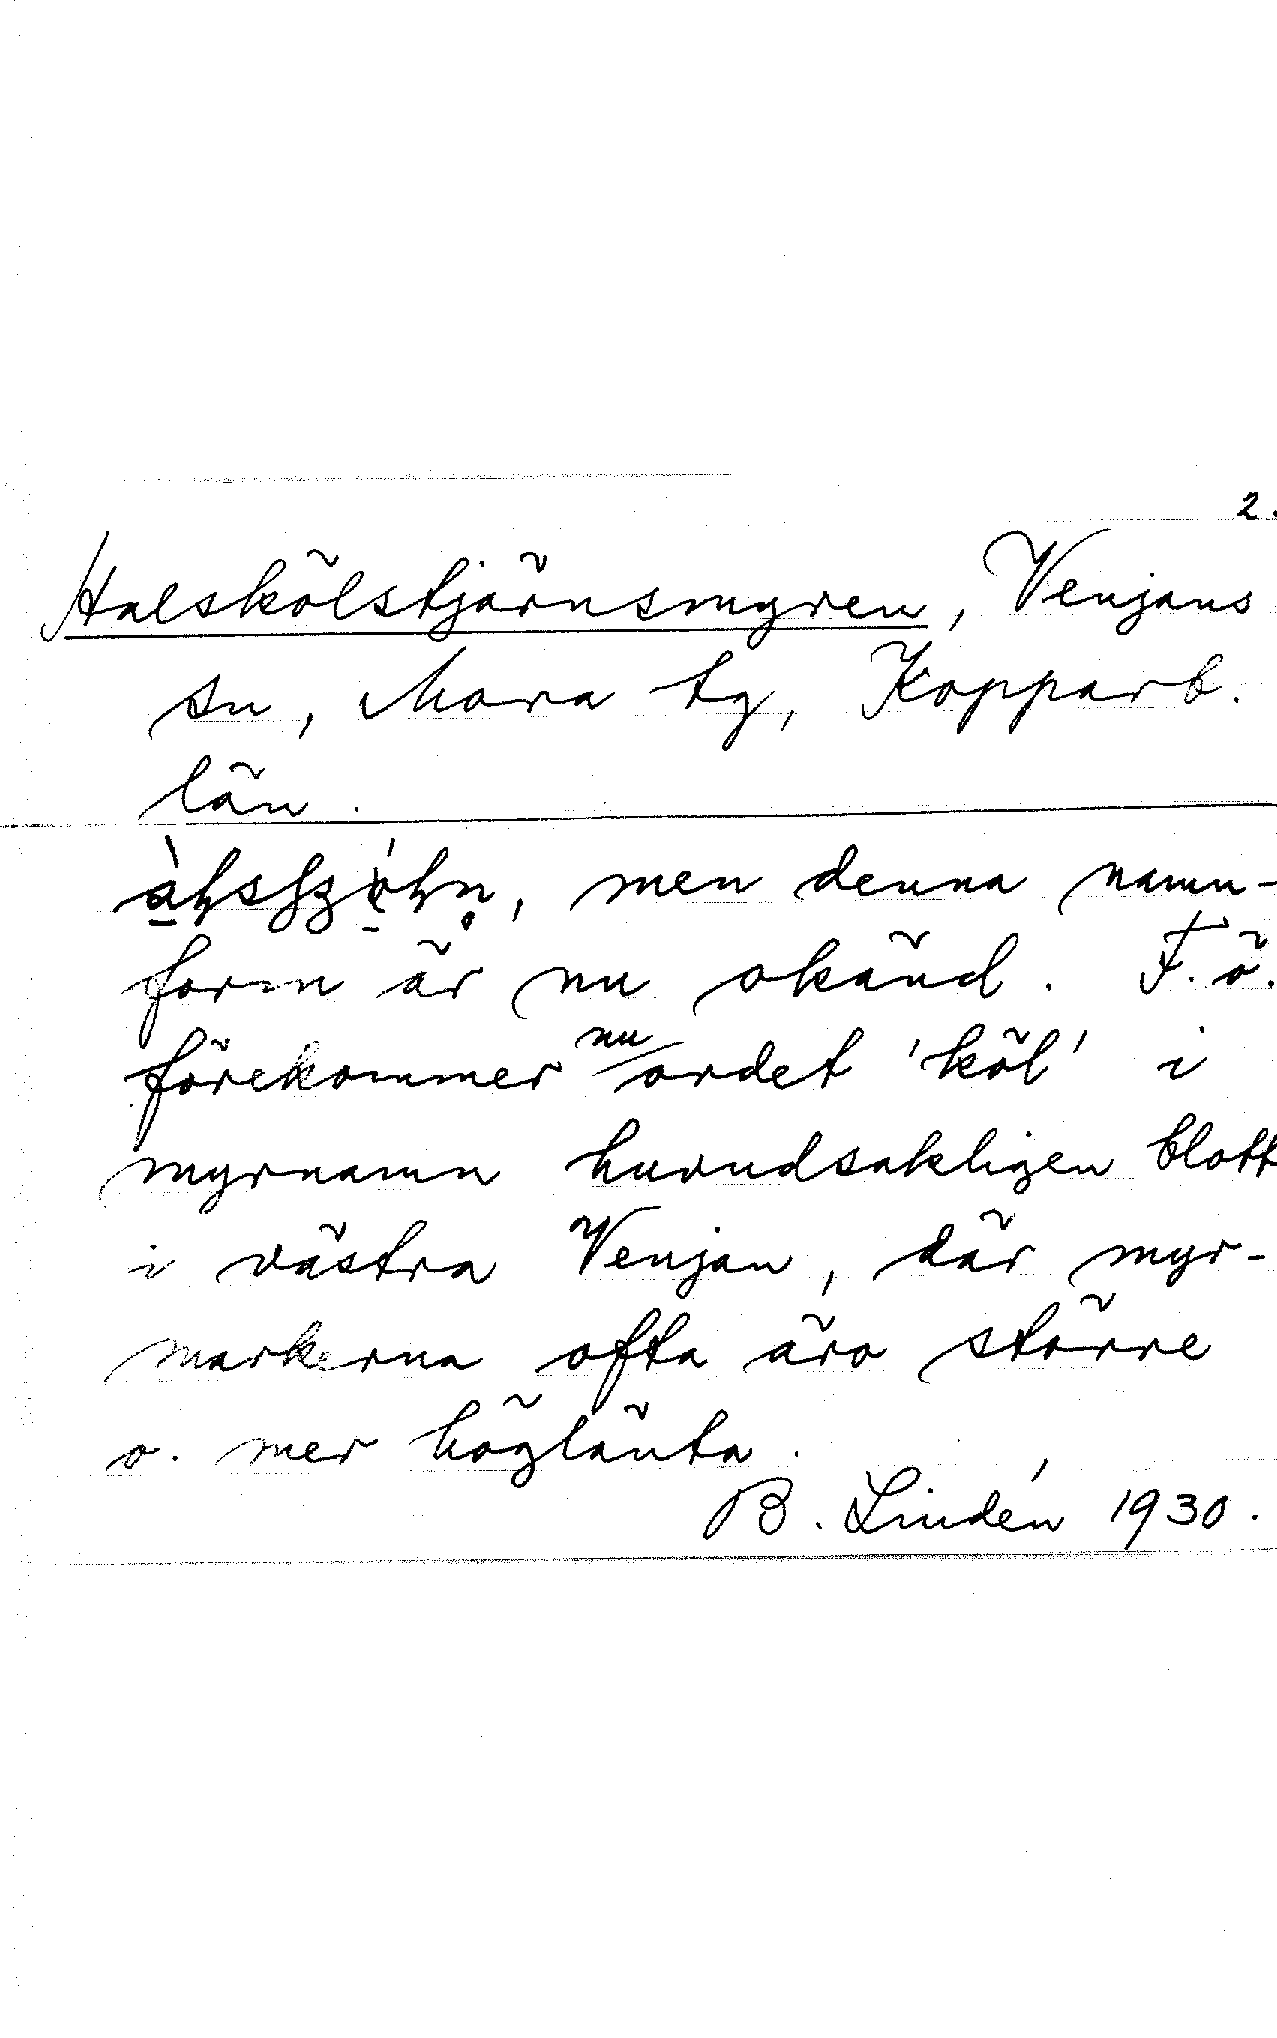 2.
Halskölstjärnsmyren, Venjans
sn, Mora tg, Kopparb.
län.
, men denna namn-
form är nu okänd. F. ö.
förekommer nu ordet 'köl' i
myrnamn huvudsakligen blott
i västra Venjan, där myr-
markerna ofta äro större
o. mer höglänta.
B. Lindén 1930.